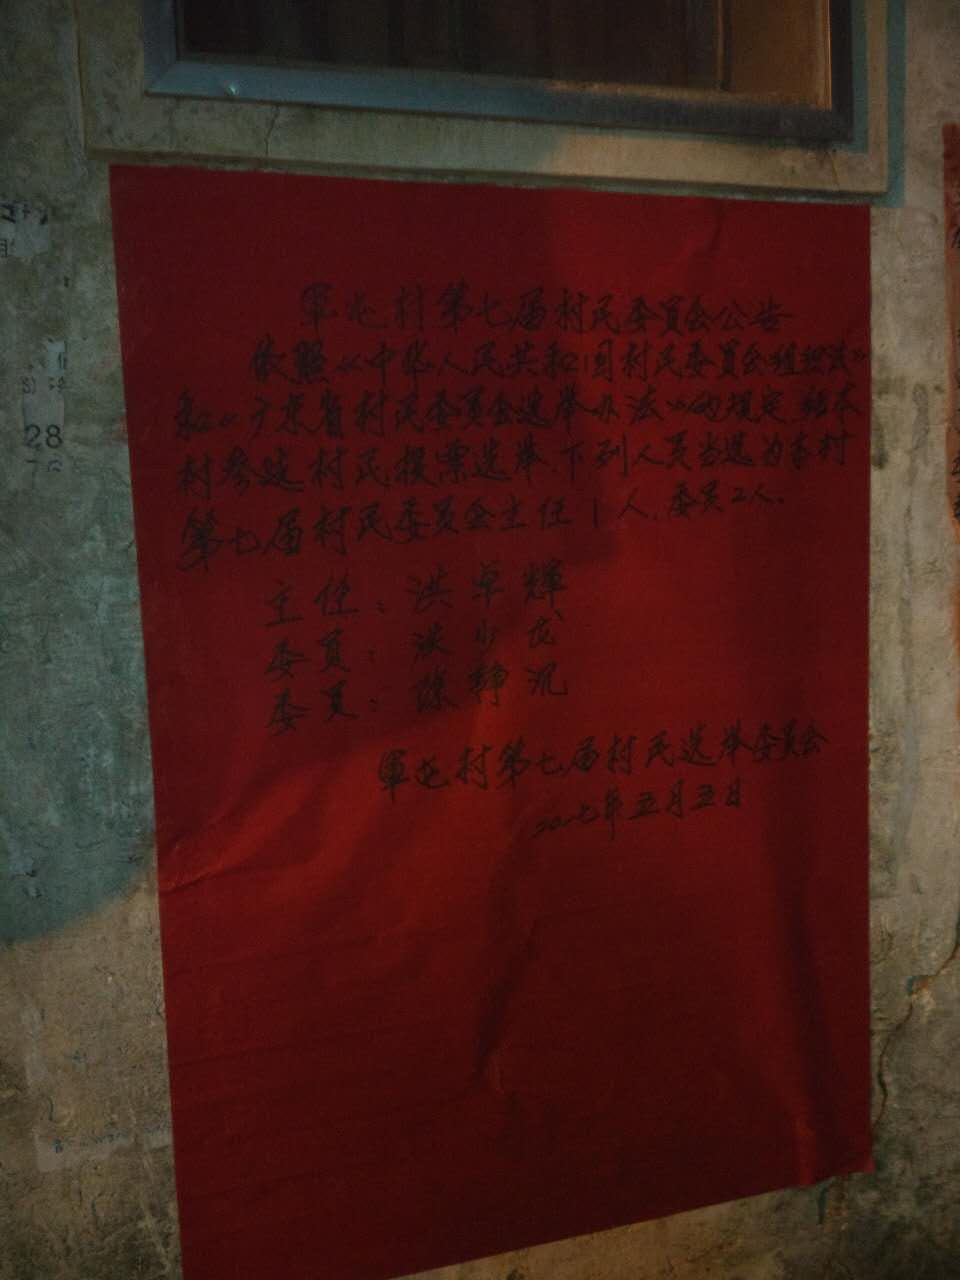 軍屯村第七届村民委員会公告
依照《中华人民共和国村民委員会组织法》
和《广东省村民委员会选举办法》的规定,经本
村参选村民投票选举,下列人员当选为本村
第七届村民委员会主任1人,委员2人.
主任:洪卓輝
委員:洪少龙
委員:陈静沉
軍屯村第七届村民选举委員会
二〇一七年五月五日
28